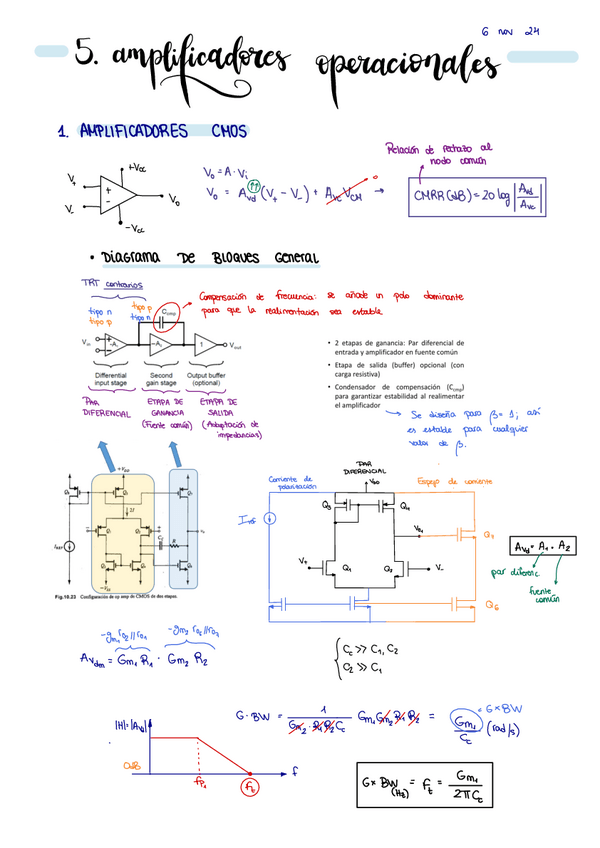 6 nov 24
5. amplificadores operacionales
1. AMPLIFICADORES CMOS
Relación de rechazo al
modo común
+Vcc
V+
V-
Vo
-Vcc
Vo = A · Vi
Vo = Avd (V+ - V-) + Avc VCM → 0
CMRR (dB) = 20 log |Avd / Avc|
• Diagrama De Bloques General
TRT contrarios
tipo n
tipo p
tipo p
tipo n
Compensación de frecuencia: se añade un polo dominante
para que la realimentación sea estable
Ccmp
Vin
-A1
-A2
1
Vout
Differential input stage
Second gain stage
Output buffer (optional)
PAR DIFERENCIAL
ETAPA DE GANANCIA (Fuente común)
ETAPA DE SALIDA (Adaptación de impedancias)
• 2 etapas de ganancia: Par diferencial de
entrada y amplificador en fuente común
• Etapa de salida (buffer) opcional (con
carga resistiva)
• Condensador de compensación (Ccmp)
para garantizar estabilidad al realimentar
el amplificador
Se diseña para β = 1; así
es estable para cualquier
valor de β.
+VDD
2I
IREF
R
-VSS
Fig.10.23 Configuración de op amp de CMOS de dos etapas.
PAR
DIFERENCIAL
VDD
Corriente de
polarización
Espejo de corriente
Q3
Q4
Vo1
Q7
V+
Q1
Q2
V-
Q6
AVd = A1 · A2
par diferenc
fuente
común
-gm1 ro2//ro4
-gm7 ro6//ro7
Avdm = Gm1 R1 · Gm2 R2
Cc >> C1, C2
C2 >> C1
|H| = |Avd|
0dB
fp1
ft
f
G·BW = 1 / (Gm2 · R1 R2 Cc) Gm1 Gm2 R1 R2 = Gm1 / Cc (rad/s)
= G×BW
G×BW (Hz) = ft = Gm1 / 2πCc